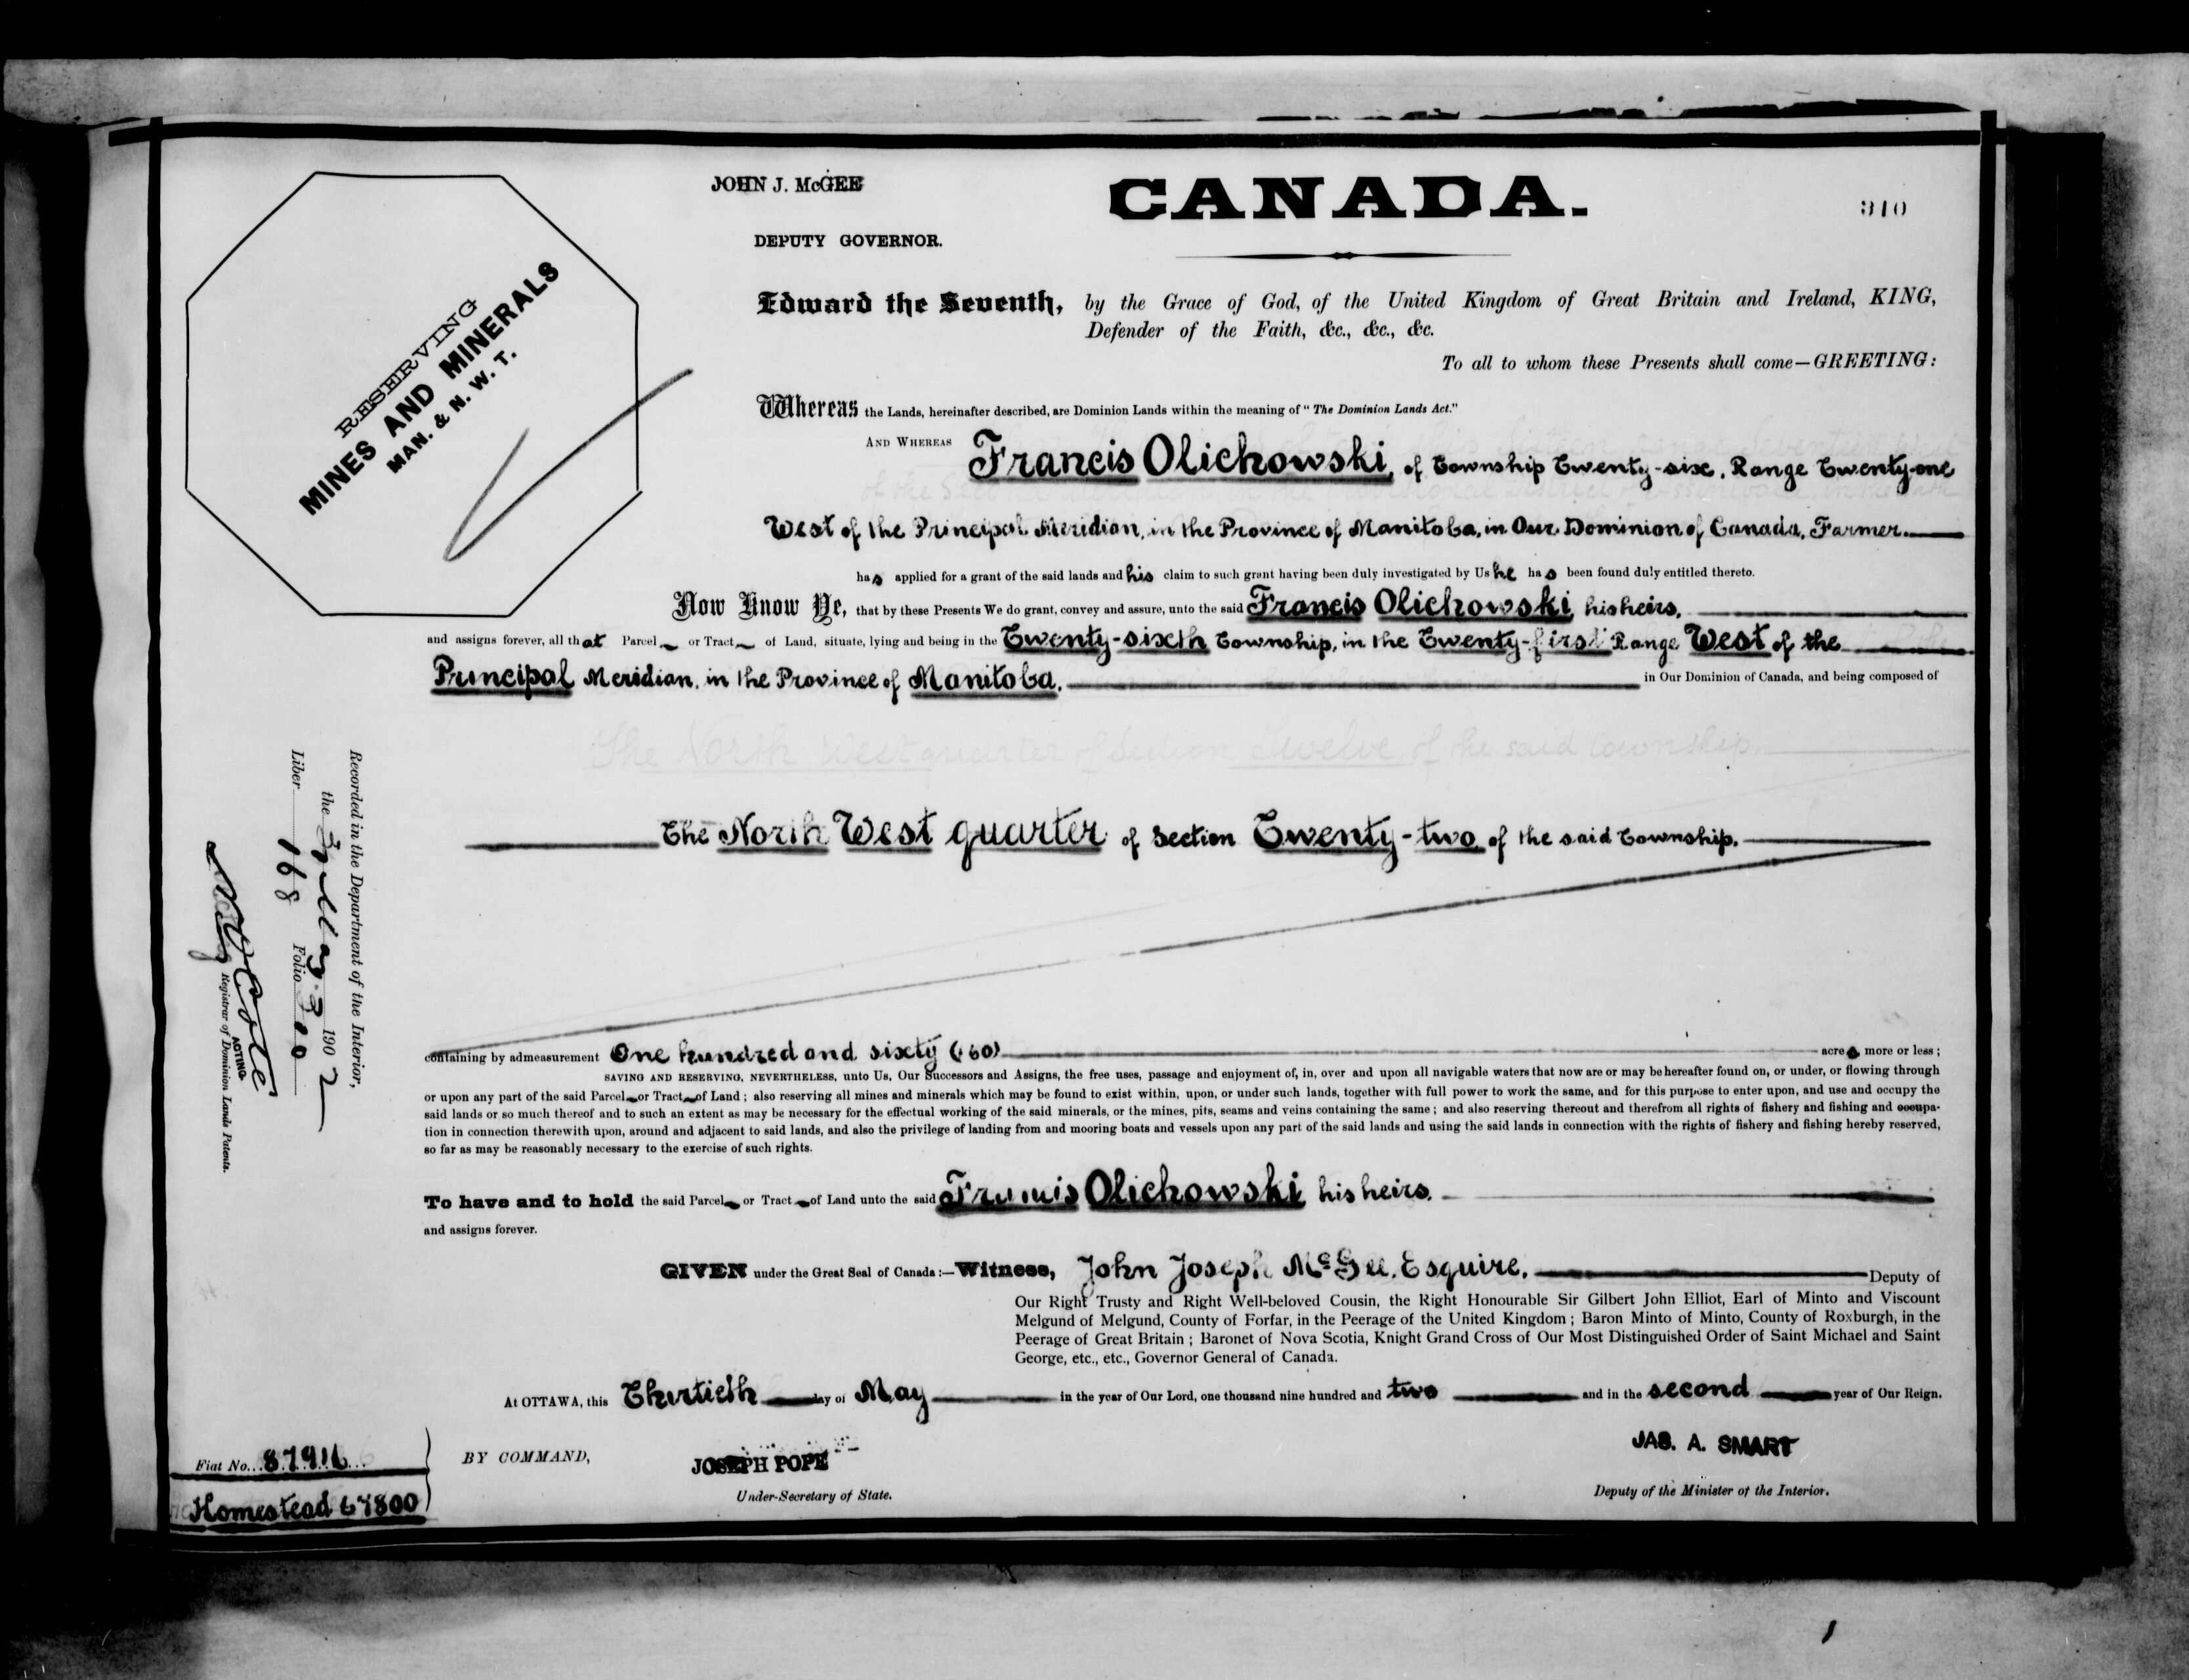 JOHN J. McGEE
CANADA.
310
DEPUTY GOVERNOR.
RESERVING
MINES AND MINERALS
MAN. & N. W. T.
Edward the Seventh, by the Grace of God, of the United Kingdom of Great Britain and Ireland, KING,
Defender of the Faith, &c., &c., &c.
To all to whom these Presents shall come—GREETING:
Whereas the Lands, hereinafter described, are Dominion Lands within the meaning of "The Dominion Lands Act."
AND WHEREAS Francis Olichowski, of Township Twenty-six, Range Twenty-one
West of the Principal Meridian, in the Province of Manitoba, in Our Dominion of Canada, Farmer.
has applied for a grant of the said lands and his claim to such grant having been duly investigated by Us he has been found duly entitled thereto.
Now Know Ye, that by these Presents We do grant, convey and assure, unto the said Francis Olichowski, his heirs,
and assigns forever, all that Parcel or Tract of Land, situate, lying and being in the Twenty-sixth Township, in the Twenty-first Range West of the
Principal Meridian, in the Province of Manitoba, in Our Dominion of Canada, and being composed of
The North West quarter of Section Twelve of the said township.
The North West quarter of Section Twenty-two of the said Township.
containing by admeasurement One hundred and sixty (160) acres more or less;
SAVING AND RESERVING, NEVERTHELESS, unto Us, Our Successors and Assigns, the free uses, passage and enjoyment of, in, over and upon all navigable waters that now are or may be hereafter found on, or under, or flowing through
or upon any part of the said Parcel or Tract of Land; also reserving all mines and minerals which may be found to exist within, upon, or under such lands, together with full power to work the same, and for this purpose to enter upon, and use and occupy the
said lands or so much thereof and to such an extent as may be necessary for the effectual working of the said minerals, or the mines, pits, seams and veins containing the same; and also reserving thereout and therefrom all rights of fishery and fishing and occupa-
tion in connection therewith upon, around and adjacent to said lands, and also the privilege of landing from and mooring boats and vessels upon any part of the said lands and using the said lands in connection with the rights of fishery and fishing hereby reserved,
so far as may be reasonably necessary to the exercise of such rights.
To have and to hold the said Parcel or Tract of Land unto the said Francis Olichowski his heirs,
and assigns forever.
GIVEN under the Great Seal of Canada:—Witness, John Joseph McGee, Esquire, Deputy of
Our Right Trusty and Right Well-beloved Cousin, the Right Honourable Sir Gilbert John Elliot, Earl of Minto and Viscount
Melgund of Melgund, County of Forfar, in the Peerage of the United Kingdom; Baron Minto of Minto, County of Roxburgh, in the
Peerage of Great Britain; Baronet of Nova Scotia, Knight Grand Cross of Our Most Distinguished Order of Saint Michael and Saint
George, etc., etc., Governor General of Canada.
At OTTAWA, this Thirtieth day of May in the year of Our Lord, one thousand nine hundred and two and in the second year of Our Reign.
BY COMMAND,
JOSEPH POPE
Under-Secretary of State.
JAS. A. SMART
Deputy of the Minister of the Interior.
Fiat No. 87916
Homestead 67800
Recorded in the Department of the Interior,
the 1902
Liber 168 Folio 310
ACTING
Registrar of Dominion Lands Patents.